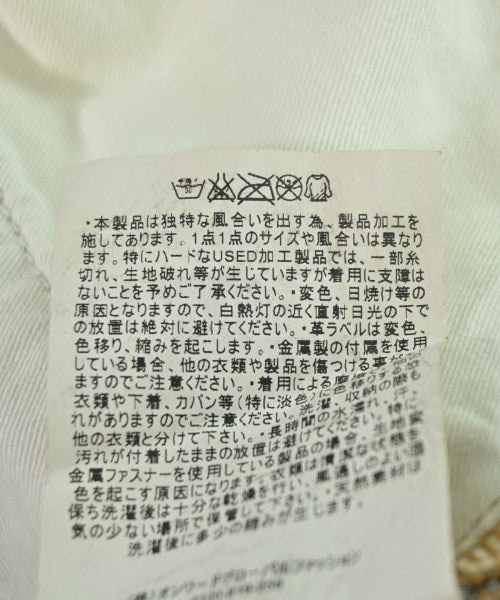 ・本製品は独特な風合いを出す為、製品加工を
施してあります。1点1点のサイズや風合いは異なり
ます。特にハードなUSED加工製品では、一部糸
切れ、生地破れ等が生じていますが着用に支障は
ないことを予めご了承ください。・変色、日焼け等の
原因となりますので、白熱灯の近く直射日光の下で
の放置は絶対に避けてください。・革ラベルは変色、
色移り、縮みを起こします。・金属製の付属を使用
している場合、他の衣類や製品を傷つける事が
ますのでご注意ください。・着用による摩擦
衣類や下着、カバン等(特に淡色)に色移りする
れがありますのでご注意ください。洗濯、収納の際も
他の衣類と分けて下さい。・長時間の水濡れ、汗、
汚れが付着したままの放置は避けてください。特に、
金属ファスナーを使用している製品の場合、生地変
色を起こす原因になります。衣類は清潔な状態を
保ち洗濯後は十分な乾燥を行い、風通しのよい湿
気の少ない場所で保管して下さい。・天然素材は
洗濯後に多少の縮みが生じます。
(株)オンワードグローバルファッション